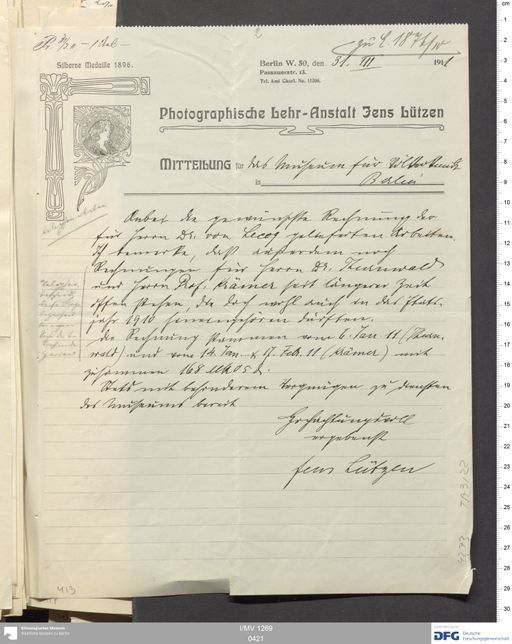 Silberne Medaille 1896.
Berlin W. 50, den 31. III 1911
Passauerstr. 13.
Tel. Amt Charl. No. 11206.
Photographische Lehr-Anstalt Jens Lützen
MITTEILUNG für das Museum für Völkerkunde
in Berlin
Anbei die gewünschte Rechnung der
für Herrn Dr. von Lecoq gelieferten Arbeiten.
Ich bemerke, daß außerdem noch
Rechnungen für Herrn Dr. Thurnwald
und Herrn Prof. Krämer seit längerer Zeit
offen stehen, die doch wohl auch in das Etats-
jahr 1910 hineingehören dürften.
Die Rechnung stammen vom 6. Jan. 11 (Thurn-
wald) und vom 14. Jan. & 17. Feb. 11 (Krämer) mit
zusammen 168 Mk 05 d.
Stets mit besonderem Vergnügen zu Diensten
des Museums bereit
Hochachtungsvoll
ergebenst
Jens Lützen
413
Ethnologisches Museum
Staatliche Museen zu Berlin
I/MV 1269
0421
DFG Deutsche
Forschungsgemeinschaft